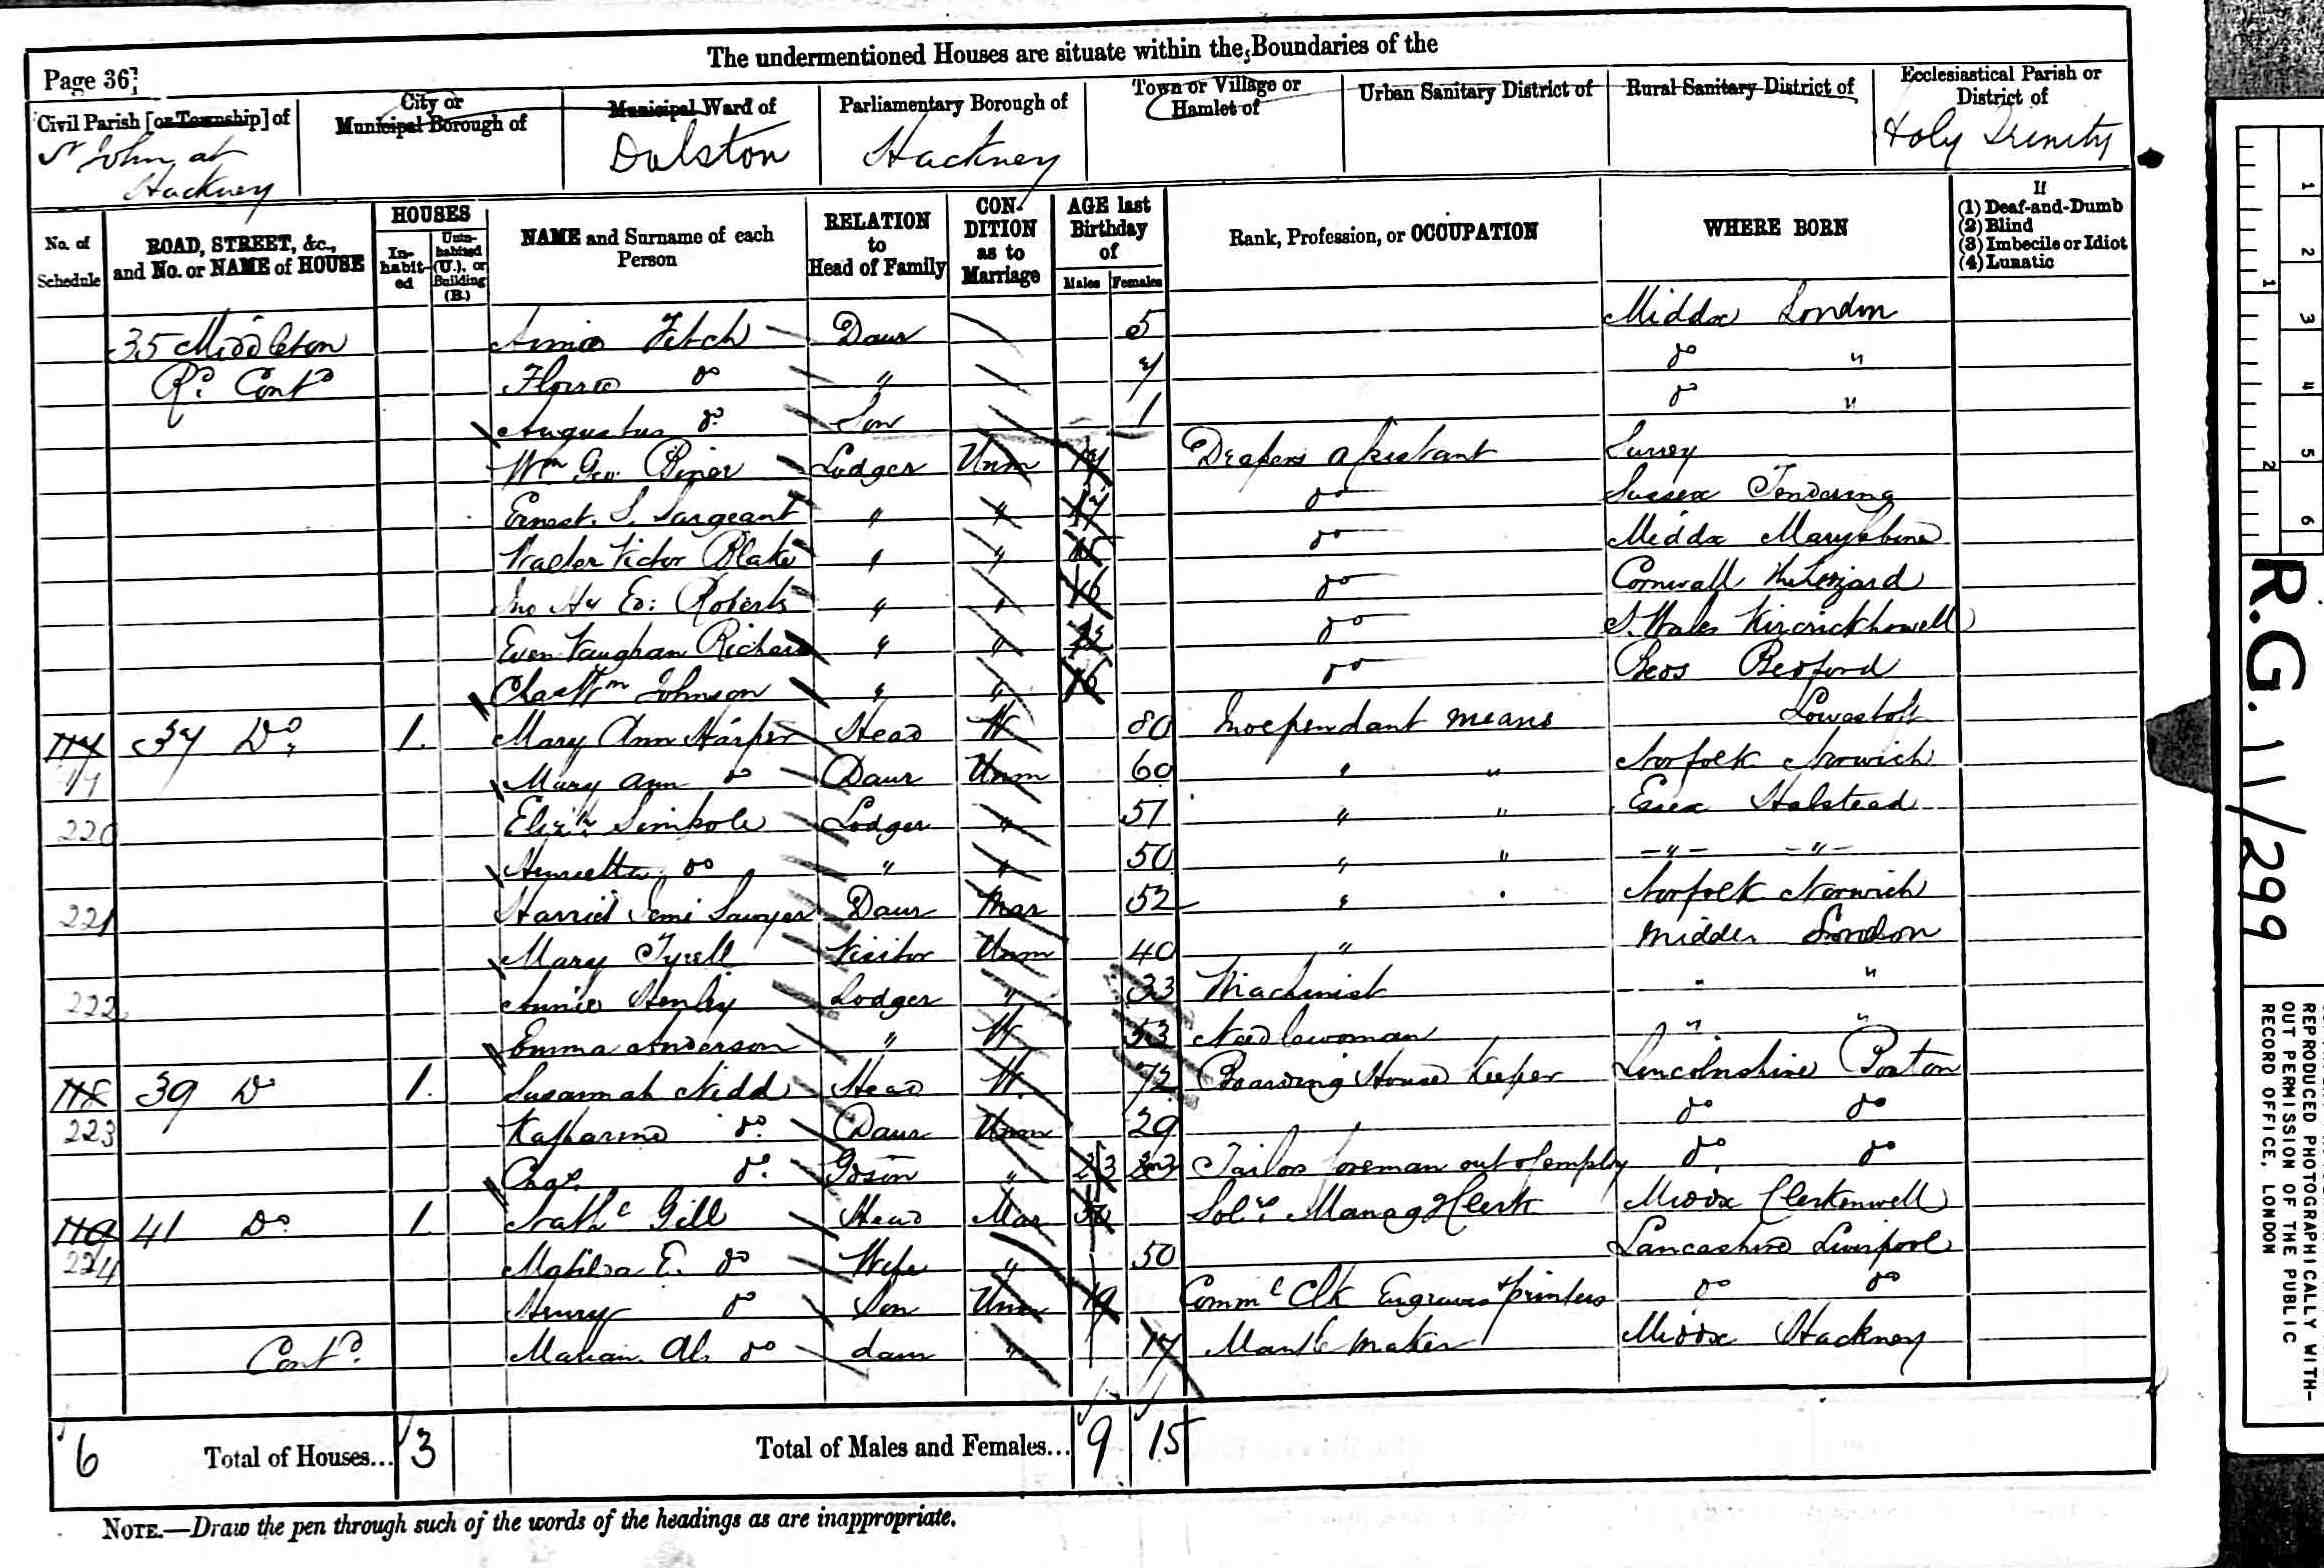 The undermentioned Houses are situate within the Boundaries of the
Page 36]
Civil Parish [or Township] of
St John at Hackney
City or Municipal Borough of
Municipal Ward of
Dalston
Parliamentary Borough of
Hackney
Town or Village or Hamlet of
Urban Sanitary District of
Rural Sanitary District of
Ecclesiastical Parish or District of
Holy Trinity
No. of Schedule
ROAD, STREET, &c., and No. or NAME of HOUSE
HOUSES
In-habit-ed
Unin-habited (U.), or Building (B.)
NAME and Surname of each Person
RELATION to Head of Family
CON-DITION as to Marriage
AGE last Birthday of
Males Females
Rank, Profession, or OCCUPATION
WHERE BORN
If
(1) Deaf-and-Dumb
(2) Blind
(3) Imbecile or Idiot
(4) Lunatic
35 Middleton Fitch Daur 5 Middx London
Rd. Contd do " do "
Augustus do Son 1 do "
Wm Geo Lodger Unm Drapers assistant Surrey
Ernest. S. Sargeant " " 17 do Sussex Tendering
Walter Victor Blake " " 15 do Middx Marylebone
Jno Hy Ed: Roberts " " 16 do Cornwall
Even Vaughan Richard " " 22 do S. Wales
Chas Wm Johnson " " 16 do Beds Bedford
117 37 Do 1. Mary Ann Harper Head W 80 Independant means Lowestoft
Mary Ann do Daur Unm 60 " " Norfolk Norwich
220 Elizth Simkole Lodger " 51 " " Essex Halstead
Henrietta do " " 50 " " -"- -"-
221 Harriet Semi Sawyer Daur Mar 52 " " Norfolk Norwich
Mary Tyrell Visitor Unm 40 " Middx London
222 Annie Henley Lodger " 33 Machinist " "
Emma Anderson " W 53 Needlewoman " "
118 39 Do 1. Susannah Nidd Head W. 72 Boarding House Keeper Lincolnshire Boston
223 Katharine do. Daur Unm 29 do do
Chas. do. " 23 Tailors foreman out of employ do. do
119 41 Do. 1. Gill Head Mar Solrs. Manag Clerk Middx Clerkenwell
224 Matilda E. do Wife " 50 Lancashire Liverpool
Henry do Son Unm 19 Commc Clk Engravers & printers do do
Contd. Marian. do daur " 17 Mantle maker Middx Hackney
6 Total of Houses... 3 Total of Males and Females... 9 15
NOTE.—Draw the pen through such of the words of the headings as are inappropriate.
1
2
3
4
5
6
1
2
R.G. 11/299
REPRODUCED PHOTOGRAPHICALLY WITH-
OUT PERMISSION OF THE PUBLIC
RECORD OFFICE, LONDON